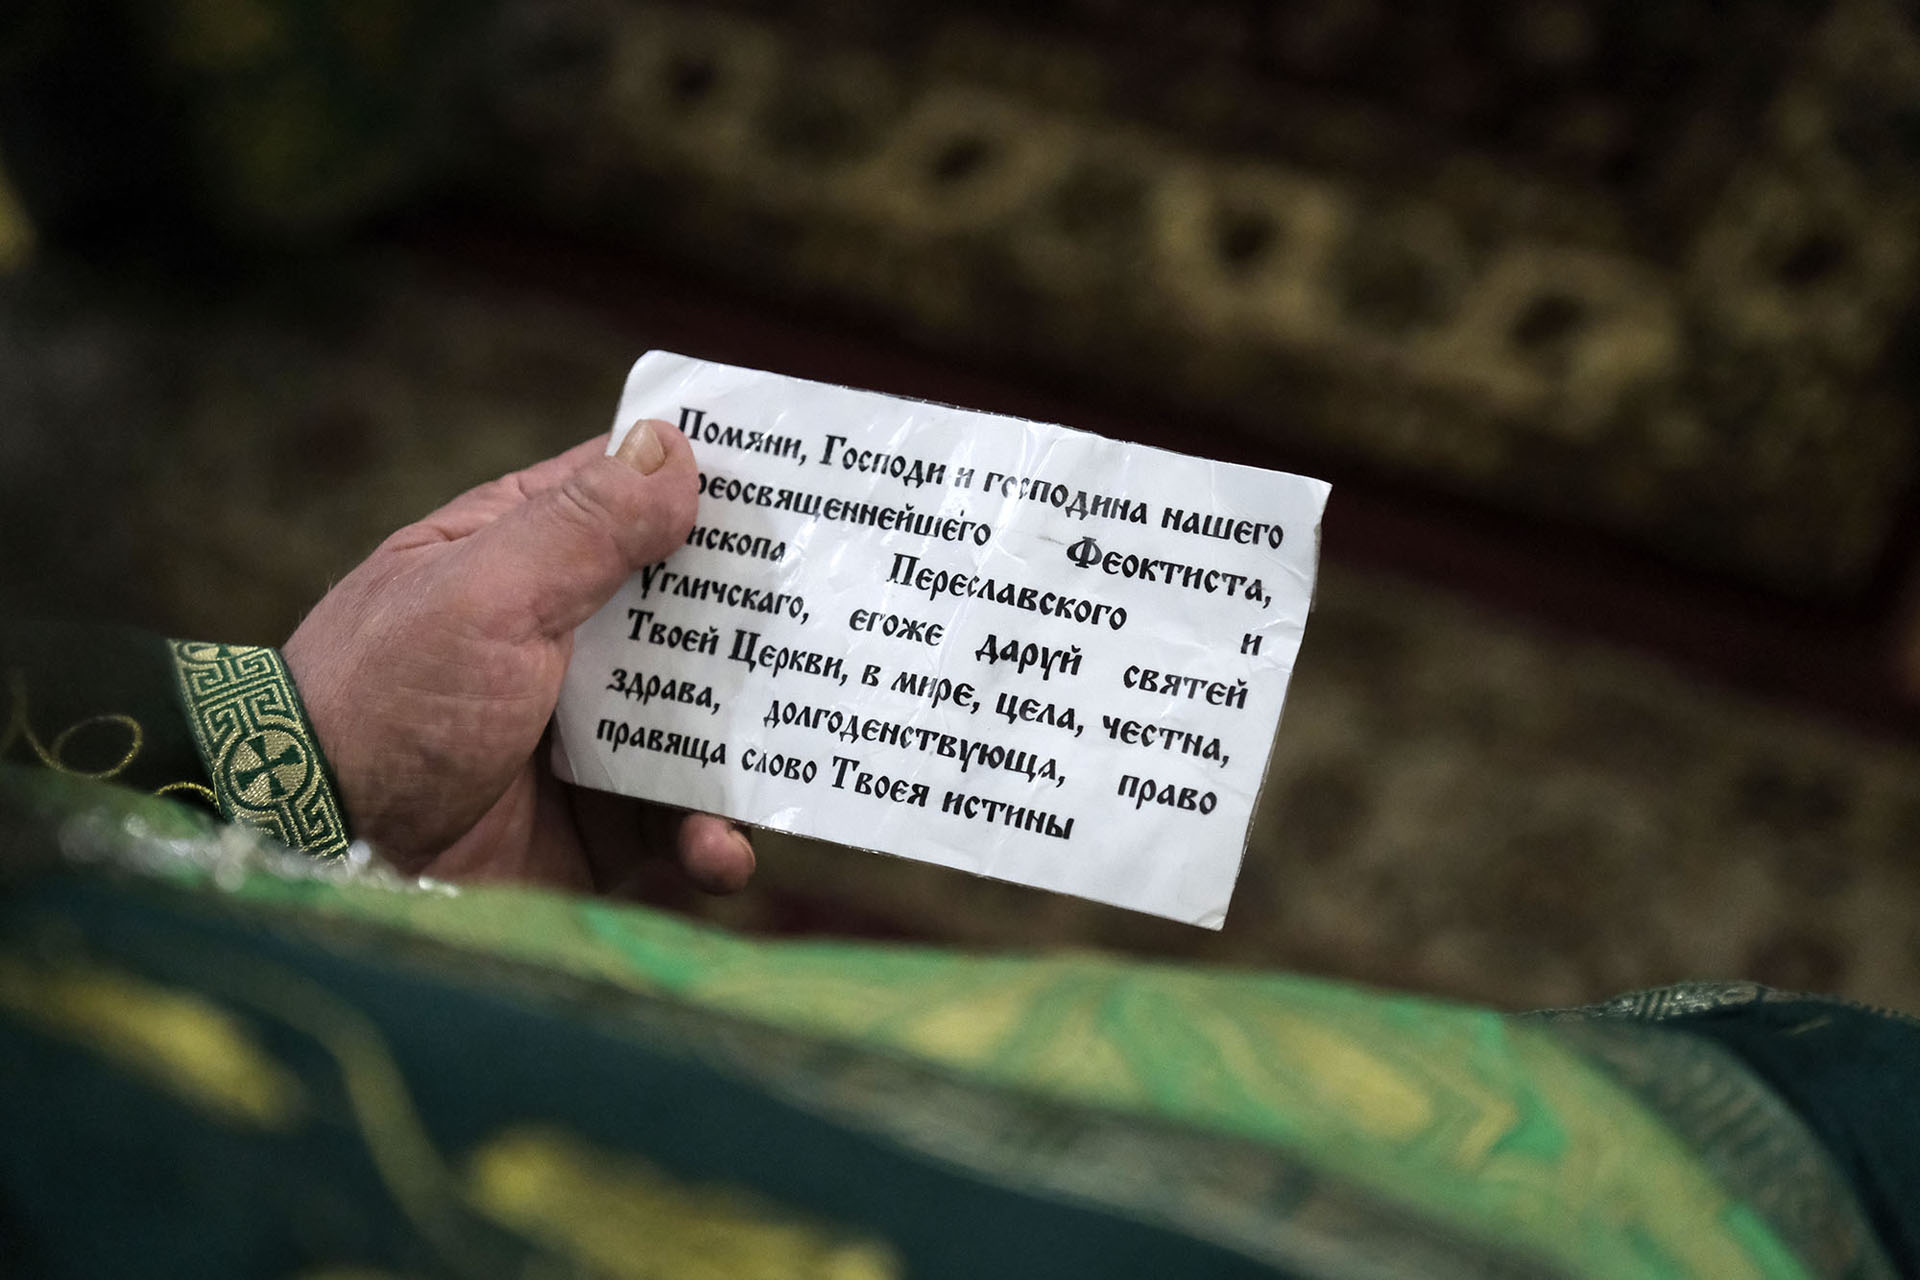 Помяни, Господи и господина нашего
реосвященнейшего Феоктиста,
ископа Переславского и
Угличскаго, егоже даруй святей
Твоей Церкви, в мире, цела, честна,
здрава, долгоденствующа, право
правяща слово Твоея истины